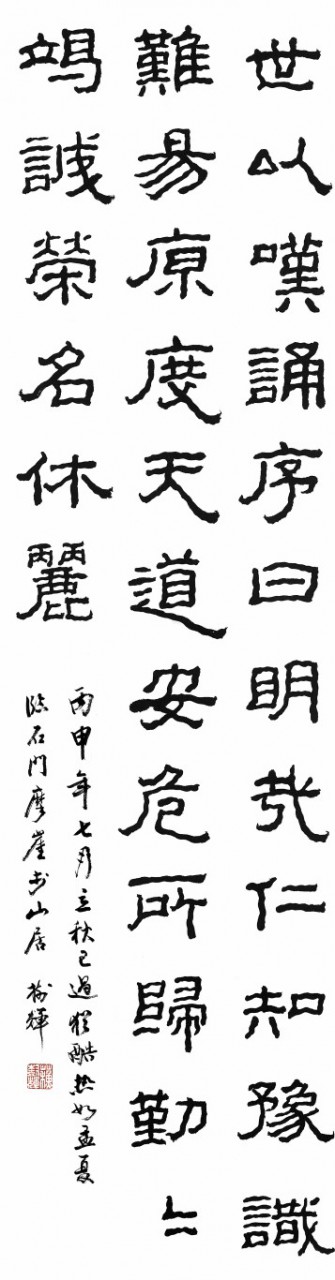 世以嘆誦序曰明哉仁知豫識
難易原度天道安危所歸勤〻
竭誠榮名休麗
丙申年七月立秋已過猶酷熱如孟夏
臨石門摩崖於山居